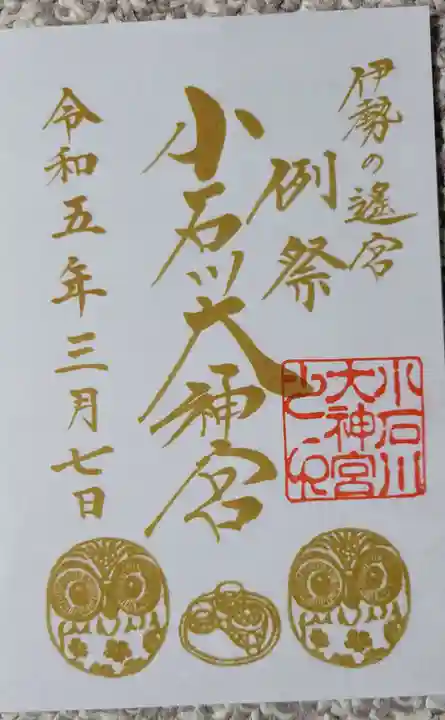 伊勢の遙宮
例祭
小石川大神宮
令和五年三月七日
小石川
大神宮